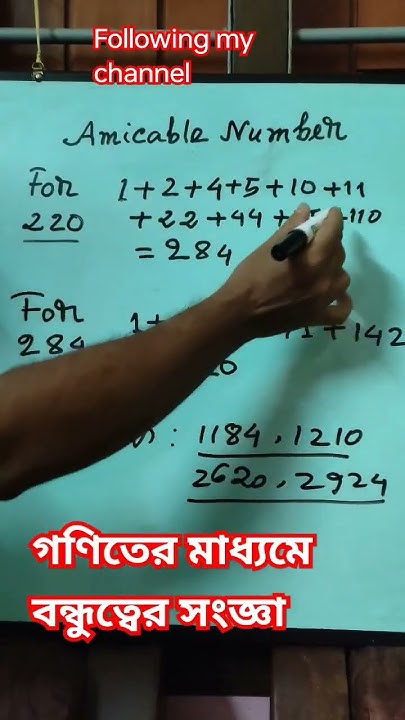 Following my
channel
Amicable Number
For 1+2+4+5+10+11
220 +22+44+ +110
= 284
For
284 1+ 71+142
: 1184, 1210
2620, 2924
গণিতের মাধ্যমে
বন্ধুত্বের সংজ্ঞা